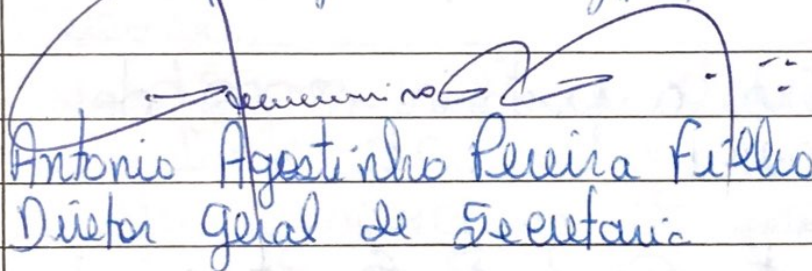 Antonio Agostinho Pereira Filho
Diretor Geral de Secretaria